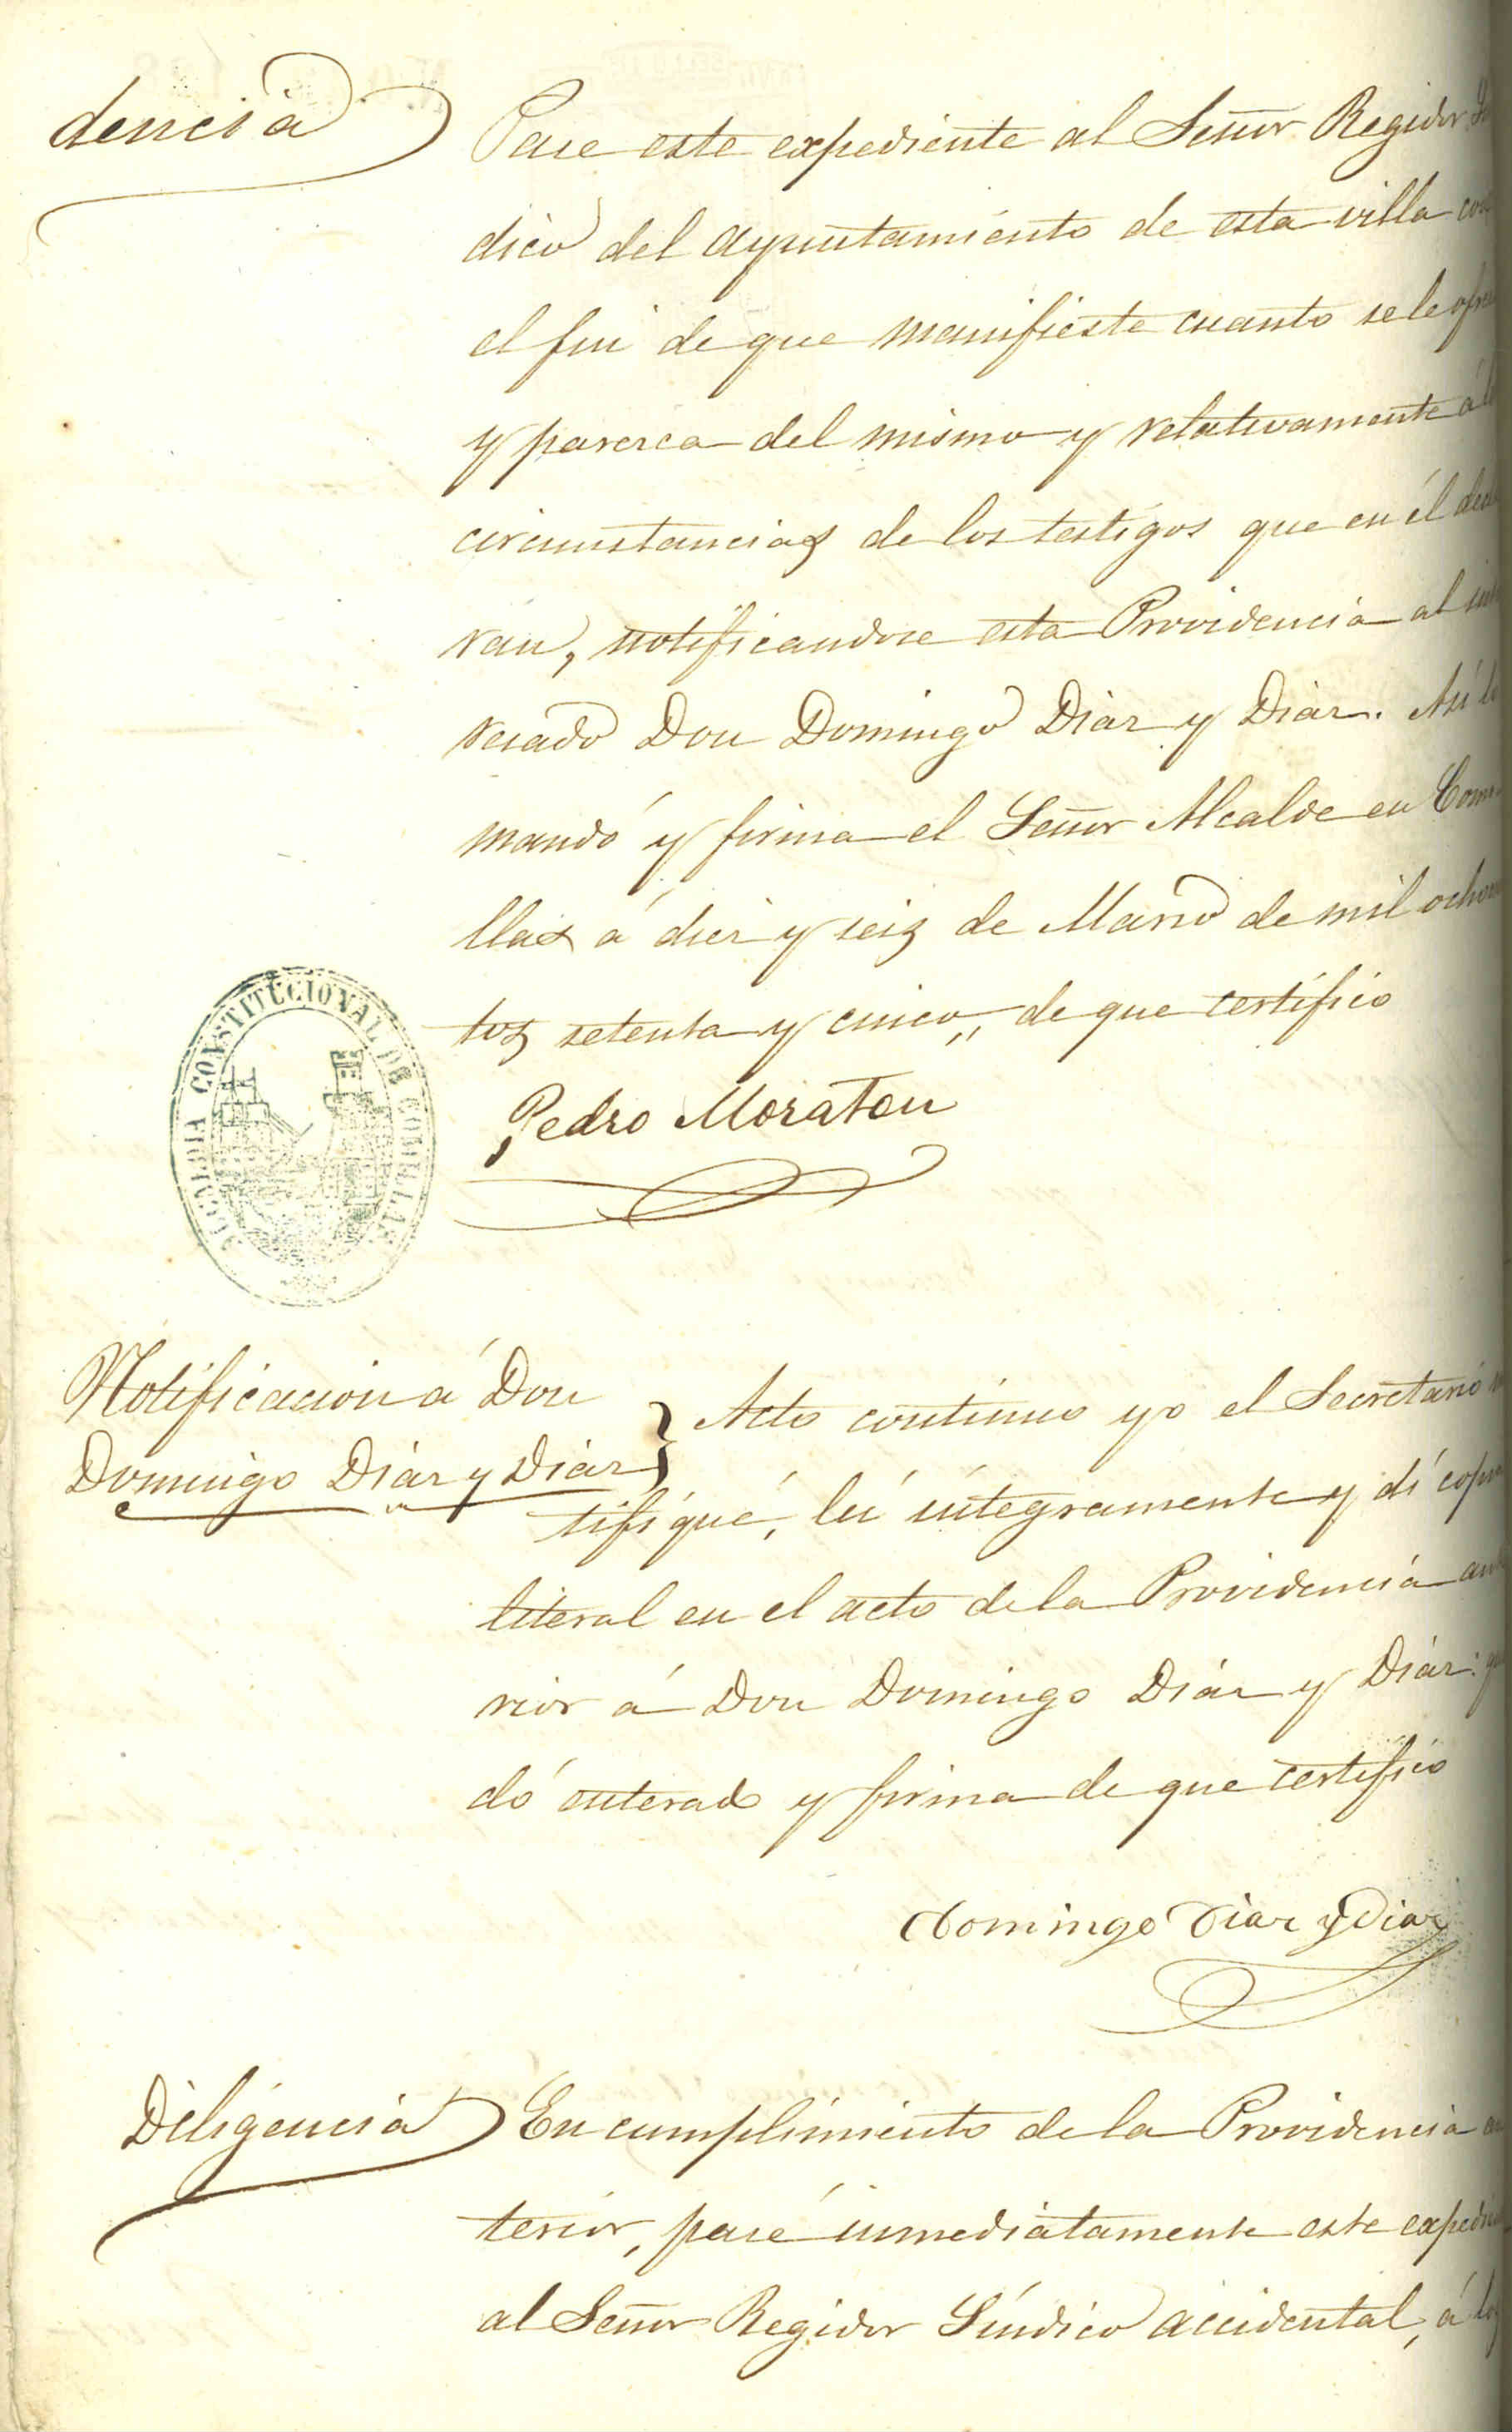 dencia
Pase este expediente al Señor Regidor
dico del Ayuntamiento de esta villa con
el fin de que manifieste cuanto se le ofre
y parezca del mismo y relativamente á
circunstancias de los testigos que en él
ran, notificandose esta Providencia al
resado Don Domingo Diaz y Diaz. Asi lo
mandó y firma el Señor Alcalde en Comi
llas á diez y seis de Marzo de mil ochocien
tos setenta y cinco,, de que certifico
ALCALDIA CONSTITUCIONAL DE COMILLAS
Pedro Moraton
Notificacion á Don
Domingo Diáz y Diáz
Acto contínuo yo el Secretario
tifiqué, leí integramente y dí copia
literal en el acto de la Providencia ante
rior á Don Domingo Diáz y Diáz:
dó enterado y firma de que certifico
Domingo Diaz y Diaz
Diligencia
En cumplimiento de la Providencia an
terior, pasé inmediatamente este expedien
al Señor Regidor Síndico accidental, á los